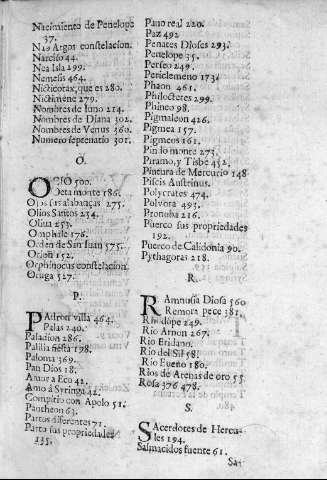 Nacimiento de Penelope
37.
Nao Argos constelacion.
Narciso 44.
Nea Isla 299.
Nemesis 464.
Nicticorax, que es 280.
Nictimene 279.
Nombres de Iuno 214.
Nombres de Diana 302.
Nombres de Venus 360.
Numero septenario 301.
O.
OCIO 500.
Oeta monte 186.
Ojos sus alabanças 275.
Olios Santos 234.
Oliua 253.
Omphale 176.
Orden de San Iuan 575.
Orion 152.
Orphinocus constelacion.
Ortiga 527.
P.
PAdron villa 464.
Palas 240.
Paladion 286.
Palilia fiesta 178.
Paloma 369.
Pan Dios 18.
Amor a Eco 42.
Amò a Syringa 42.
Compitio con Apolo 51.
Pantheon 63.
Partos diferentes 71.
Parto sus propriedades
135.
Pauo real 220.
Paz 492
Penates Dioses 293.
Penelope 35.
Perseo 249.
Periclemeno 173.
Phaon 461.
Philoctetes 299.
Phineo 98.
Pigmaleon 426.
Pigmea 157.
Pigmeos 161.
Pindo monte 273.
Piramo, y Tisbe 452.
Pintura de Mercurio 148
Piscis Austrinus.
Polycrates 474.
Polvora 493.
Pronuba 216.
Puerco sus propriedades
192.
Puerco de Calidonia 90.
Pythagoras 218.
R.
RAmnusia Diosa 560
Remora pece 381.
Rhodope 249.
Rio Arnon 267.
Rio Eridano.
Rio del Sil 58.
Rio Eueno 180.
Rios de Arenas de oro 55
Rosa 376 478.
S.
SAcerdotes de Hercu-
les 194.
Salmacidos fuente 61.
Sa-